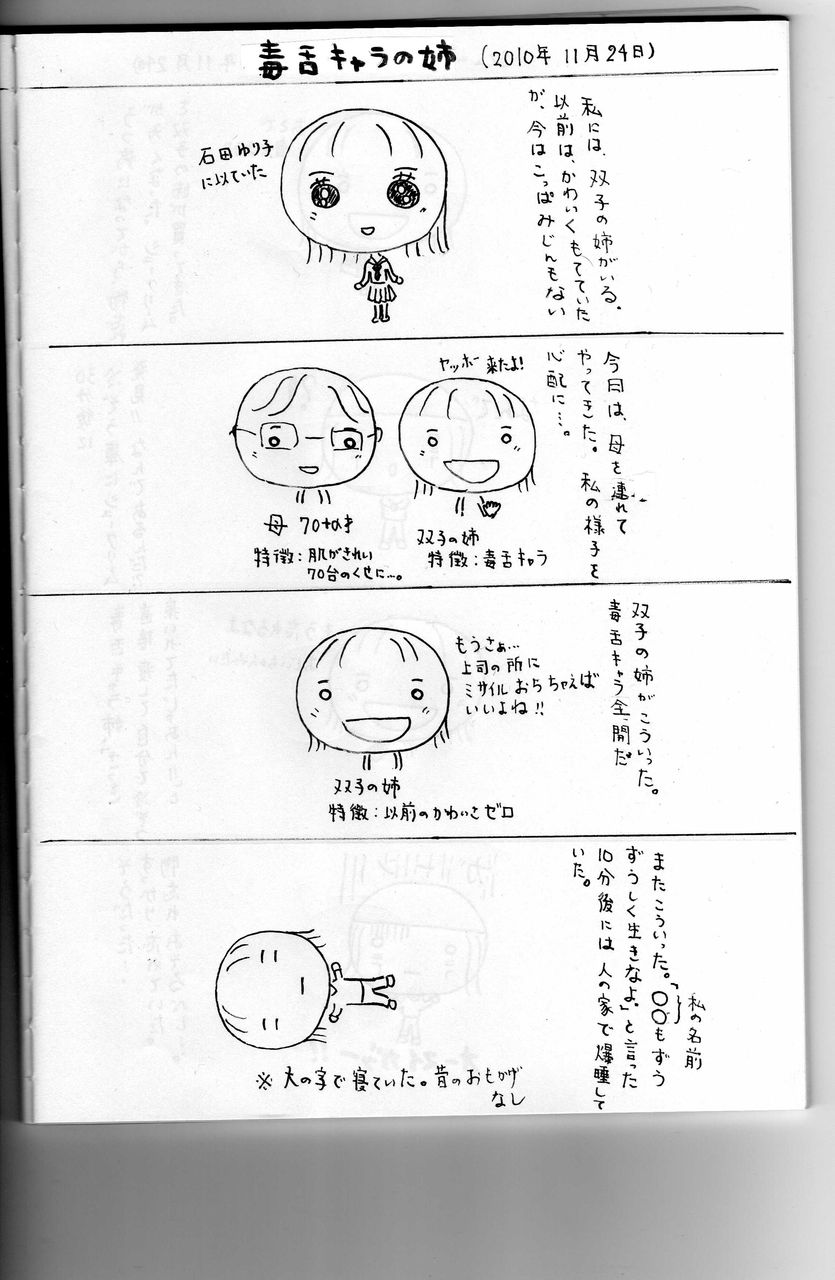 毒舌キャラの姉 (2010年 11月24日)
私には、双子の姉がいる。
以前は、かわいくもてていた
が、今はこっぱみじんもない
石田ゆり子
に似ていた
今日は、母を連れて
やってきた。私の様子を
心配に…。
ヤッホー来たよ!
母 70才
特徴:肌がきれい
70台のくせに…。
双子の姉
特徴:毒舌キャラ
双子の姉がこういった。
毒舌キャラ全開だ
もうさぁ…
上司の所に
ミサイルおちちゃえば
いいよね!!
双子の姉
特徴:以前のかわいさゼロ
またこういった。「〇〇もずう
私の名前
ずうしく生きなよ。」と言った
10分後には人の家で爆睡して
いた。
※大の字で寝ていた。昔のおもかげ
なし